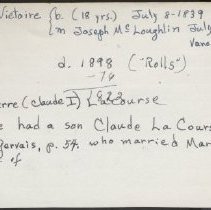 Victoire { b. (18 yrs.) July 8-1839
m Joseph McLoughlin July
Vanc
d. 1898 ("Rolls")
-76
1822
erre (Claude I) La Course
e had a son Claude La Cours
Gervais, p. 54, who married Mar
of